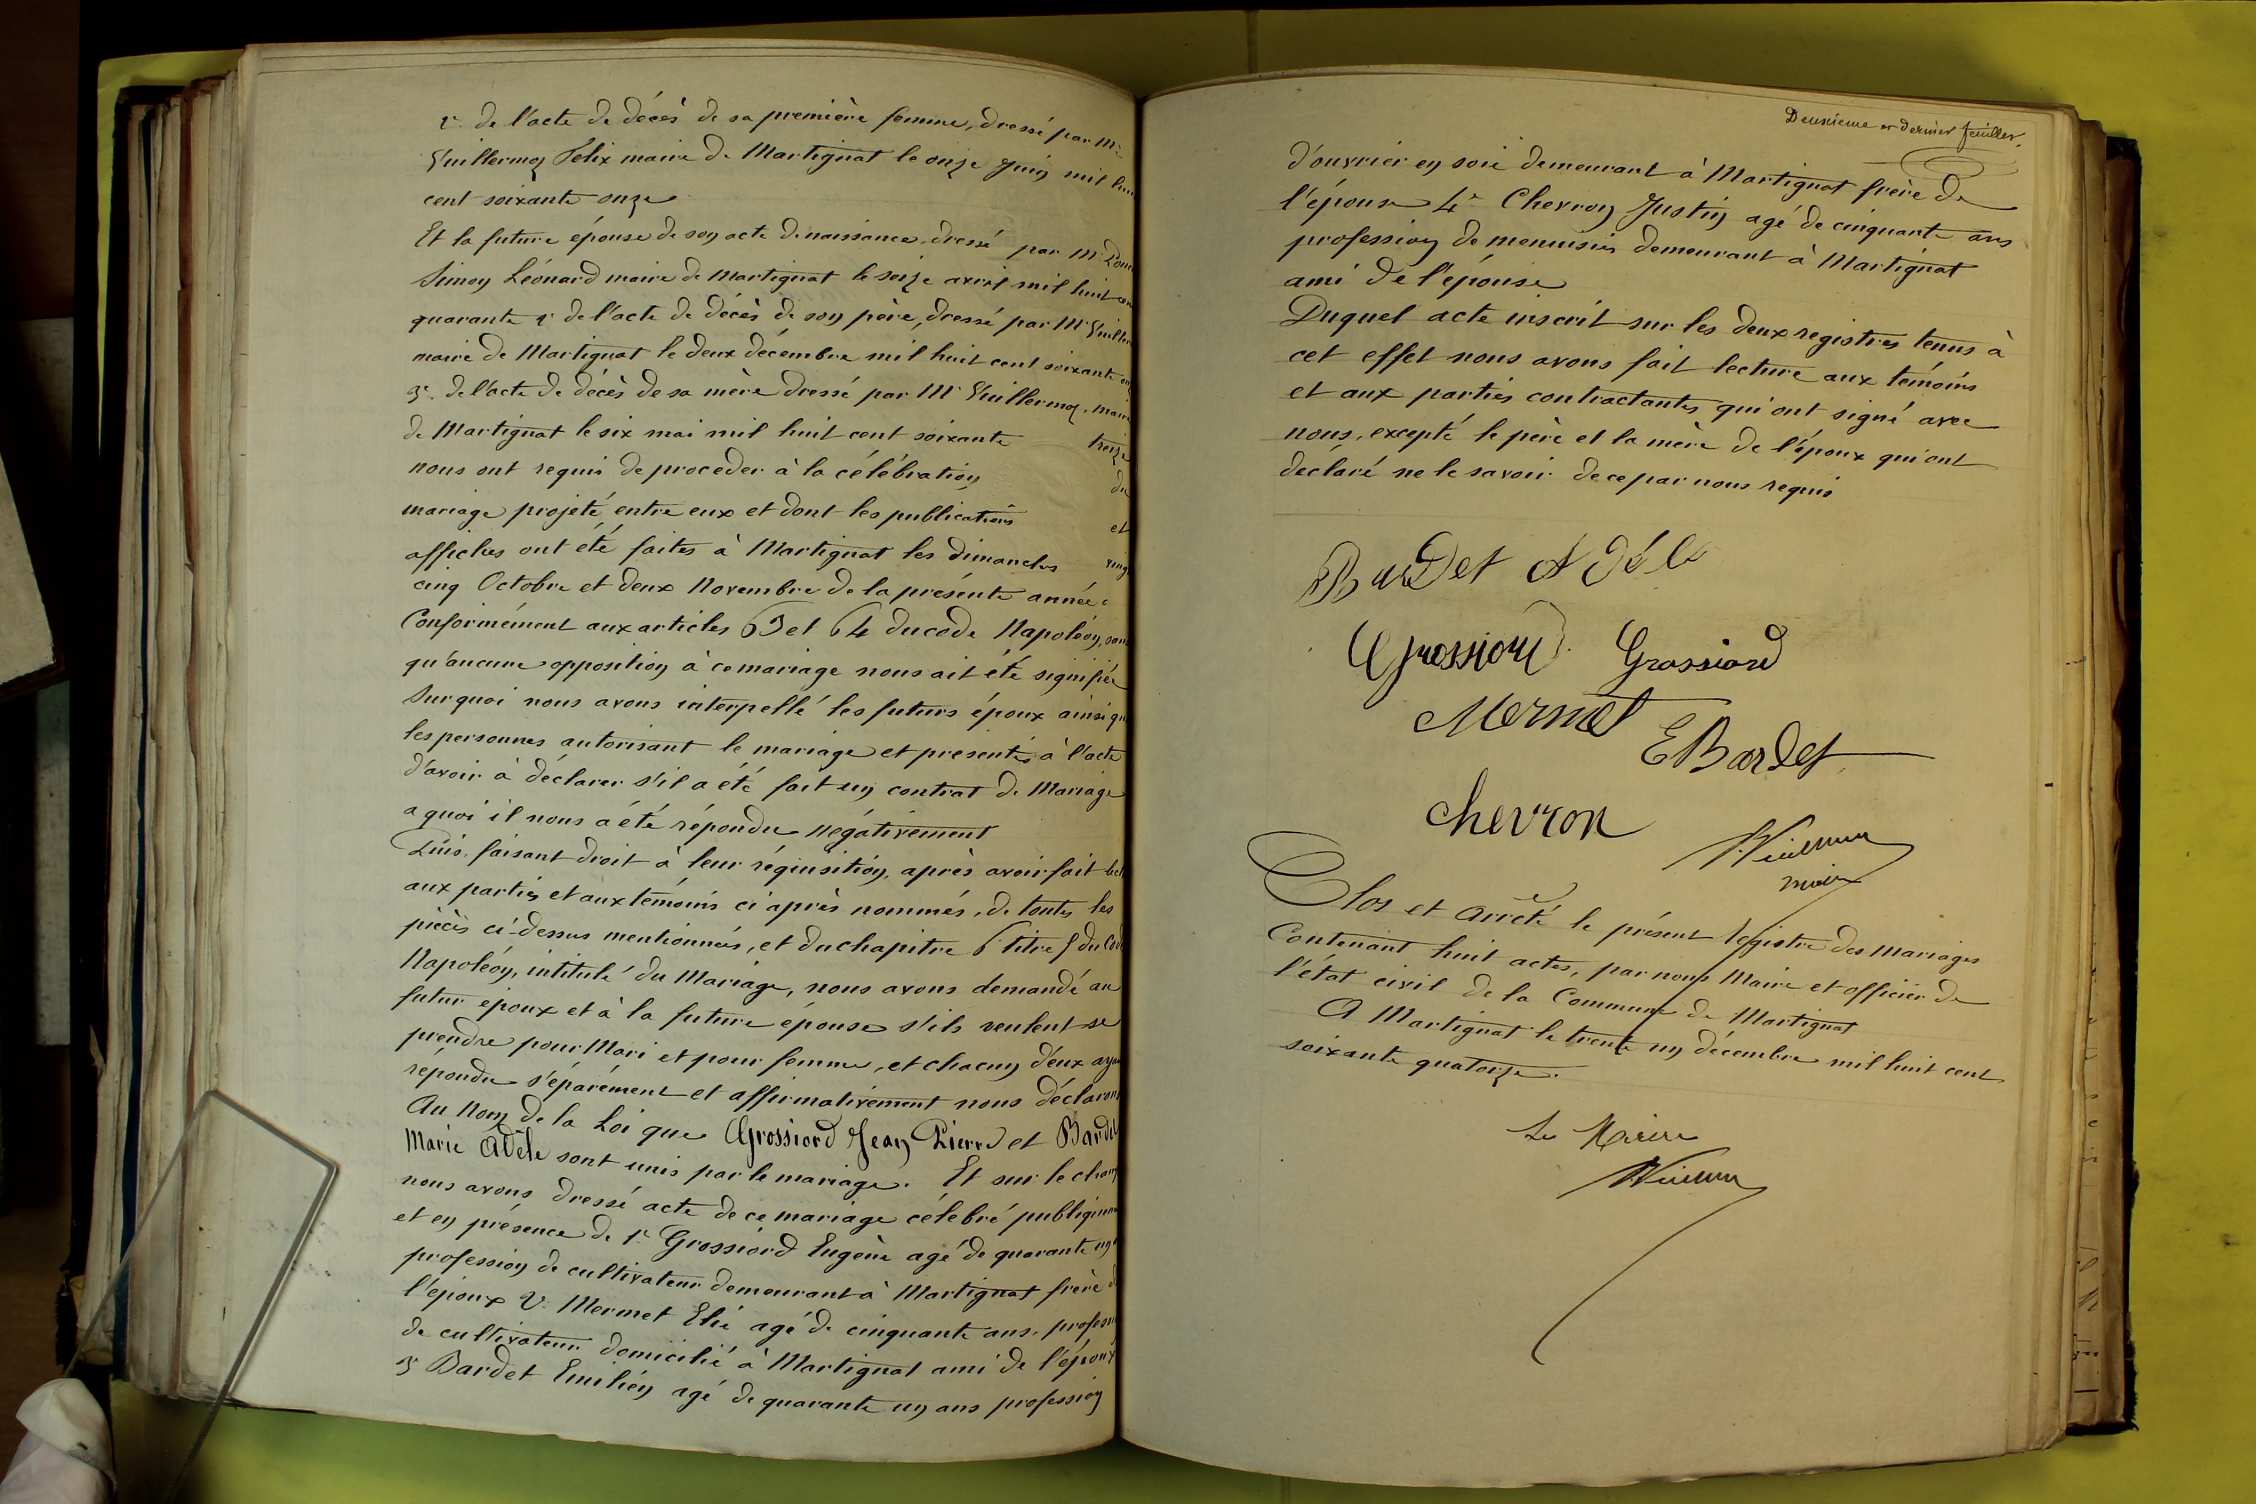 2° de l'acte de décès de sa première femme, dressé par Mr
Vuillermoz Félix maire de Martignat le onze Juin mil huit
cent soixante onze
Et la future épouse de son acte de naissance dressé par Mr
Simon Léonard maire de Martignat le seize avril mil huit cent
quarante 2° de l'acte de décès de son père, dressé par Mr Vuiller
maire de Martignat le deux décembre mil huit cent soixante
3° de l'acte de décès de sa mère dressé par Mr Vuillermoz, maire
de Martignat le six mai mil huit cent soixante treize
nous ont requis de procéder à la célébration du
mariage projeté entre eux et dont les publications et
affiches ont été faites à Martignat les dimanches vingt
cinq Octobre et deux Novembre de la présente année
Conformément aux articles 63 et 64 du code Napoléon, sans
qu'aucune opposition à ce mariage nous ait été signifiée
Sur quoi nous avons interpellé les futurs époux ainsi que
les personnes autorisant le mariage et présentes à l'acte
d'avoir à déclarer s'il a été fait un contrat de Mariage
a quoi il nous a été répondu négativement
Puis, faisant droit à leur réquisition, après avoir fait lect
aux parties et aux témoins ci après nommés, de toutes les
pièces ci-dessus mentionnées, et du chapitre 6 titre 5 du Code
Napoléon, intitulé du Mariage, nous avons demandé au
futur époux et à la future épouse s'ils veulent se
prendre pour Mari et pour femme, et chacun d'eux ayant
répondu séparément et affirmativement nous déclarons
Au Nom de la Loi que Grossiord Jean Pierre et Bardet
Marie Adèle sont unis par le mariage. Et sur le champ
nous avons dressé acte de ce mariage célébré publiquement
et en présence de 1° Grossiord Eugène agé de quarante un
profession de cultivateur demeurant à Martignat frère de
l'époux 2° Mermet Elie agé de cinquante ans profession
de cultivateur domicilié à Martignat ami de l'époux
3° Bardet Emilién agé de quarante un ans profession
Deuxième et dernier feuillet.
d'ouvrier en soie demeurant à Martignat frère de
l'épouse 4° Chevron Justin agé de cinquante ans
profession de menuisier demeurant à Martignat
ami de l'épouse
Duquel acte inscrit sur les deux registres tenus à
cet effet nous avons fait lecture aux témoins
et aux parties contractantes qui ont signé avec
nous, excepté le père et la mère de l'époux qui ont
déclaré ne le savoir de ce par nous requis
Bardet Adéle
Grossiord Grossiord
Mermet
E Bardet
chevron
maire
Clos et arrêté le présent registre des mariages
Contenant huit actes, par nous Maire et officier de
l'état civil de la Commune de Martignat
A Martignat le trente un décembre mil huit cent
soixante quatorze.
Le Maire